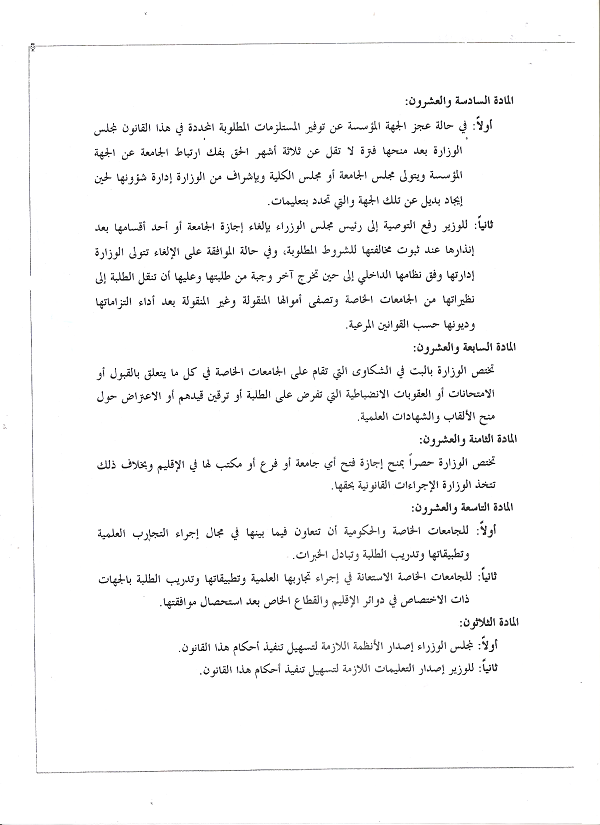 المادة السادسة والعشرون:
أولاً: في حالة عجز الجهة المؤسسة عن توفير المستلزمات المطلوبة المحددة في هذا القانون لمجلس
الوزارة بعد منحها فترة لا تقل عن ثلاثة أشهر الحق بفك ارتباط الجامعة عن الجهة
المؤسسة ويتولى مجلس الجامعة أو مجلس الكلية وبإشراف من الوزارة إدارة شؤونها لحين
إيجاد بديل عن تلك الجهة والتي تحدد بتعليمات.
ثانياً: للوزير رفع التوصية إلى رئيس مجلس الوزراء بإلغاء إجازة الجامعة أو أحد أقسامها بعد
إنذارها عند ثبوت مخالفتها للشروط المطلوبة، وفي حالة الموافقة على الإلغاء تتولى الوزارة
إدارتها وفق نظامها الداخلي إلى حين تخرج آخر وجبة من طلبتها وعليها أن تنقل الطلبة إلى
نظيراتها من الجامعات الخاصة وتصفى أموالها المنقولة وغير المنقولة بعد أداء التزاماتها
وديونها حسب القوانين المرعية.
المادة السابعة والعشرون:
تختص الوزارة بالبت في الشكاوى التي تقام على الجامعات الخاصة في كل ما يتعلق بالقبول أو
الامتحانات أو العقوبات الانضباطية التي تفرض على الطلبة أو ترقين قيدهم أو الاعتراض حول
منح الألقاب والشهادات العلمية.
المادة الثامنة والعشرون:
تختص الوزارة حصراً بمنح إجازة فتح أي جامعة أو فرع أو مكتب لها في الإقليم وبخلاف ذلك
تتخذ الوزارة الإجراءات القانونية بحقها.
المادة التاسعة والعشرون:
أولاً: للجامعات الخاصة والحكومية أن تتعاون فيما بينها في مجال إجراء التجارب العلمية
وتطبيقاتها وتدريب الطلبة وتبادل الخبرات.
ثانياً: للجامعات الخاصة الاستعانة في إجراء تجاربها العلمية وتطبيقاتها وتدريب الطلبة بالجهات
ذات الاختصاص في دوائر الإقليم والقطاع الخاص بعد استحصال موافقتها.
المادة الثلاثون:
أولاً: لمجلس الوزراء إصدار الأنظمة اللازمة لتسهيل تنفيذ أحكام هذا القانون.
ثانياً: للوزير إصدار التعليمات اللازمة لتسهيل تنفيذ أحكام هذا القانون.